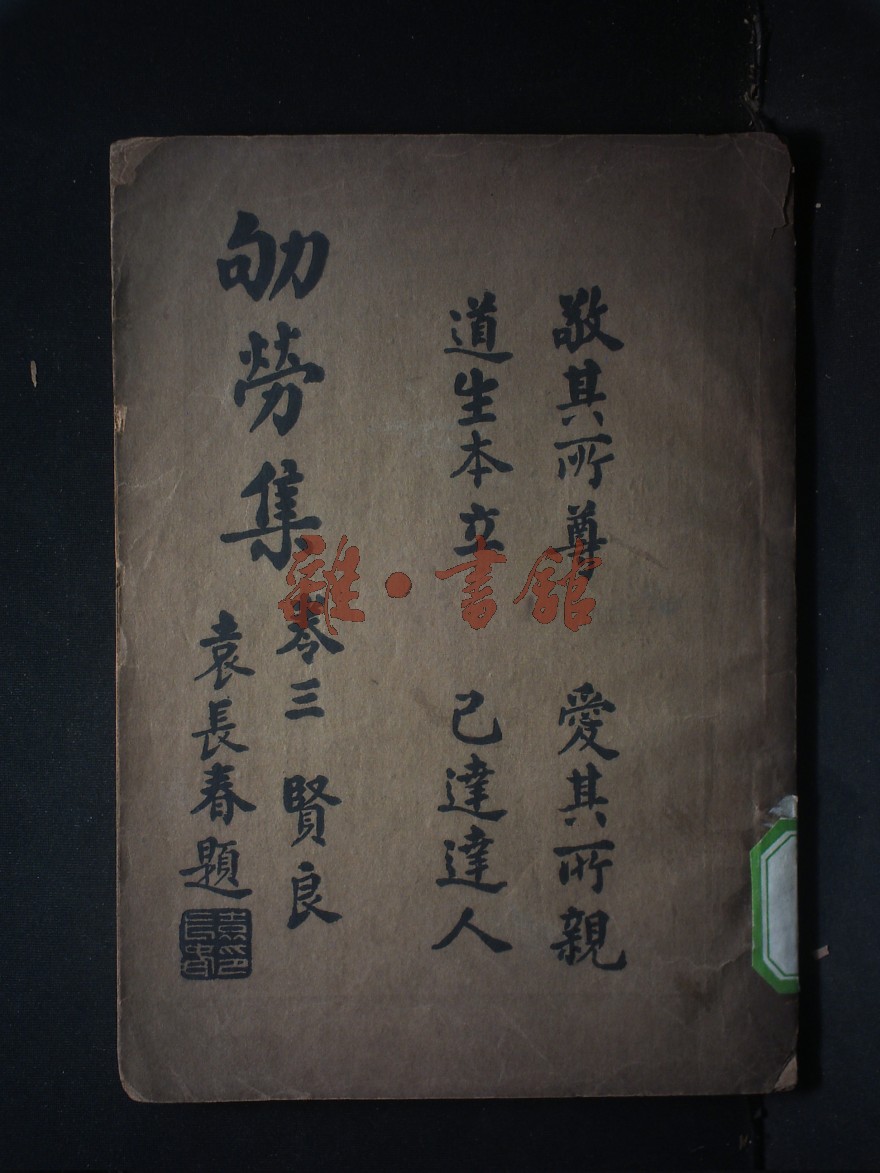 敬其所尊 愛其所親
道生本立 己達達人
劬勞集
卷三 賢良
袁長春題
袁長春印
雜·書館